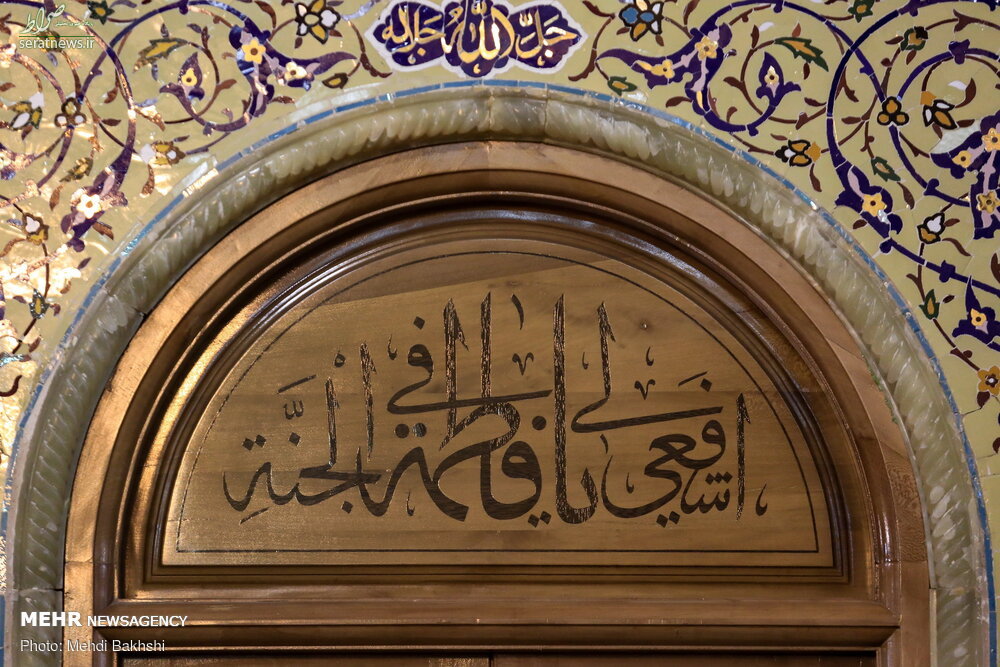 صراط
seratnews.ir
جل الله جلاله
یا فاطمة اشفعی لی فی الجنة
MEHR NEWSAGENCY
Photo: Mehdi Bakhshi